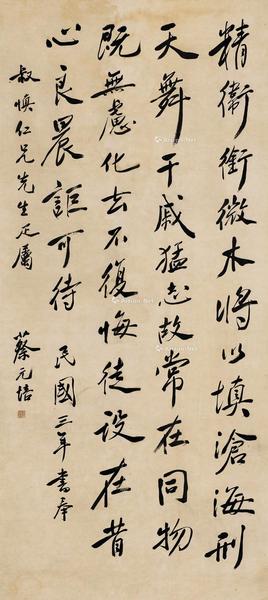 精衛銜微木將以填滄海刑
天舞干戚猛志故常在同物
既無慮化去不復悔徒設在昔
心良晨詎可待
民國三年書奉
叔慎仁兄先生疋屬
蔡元培